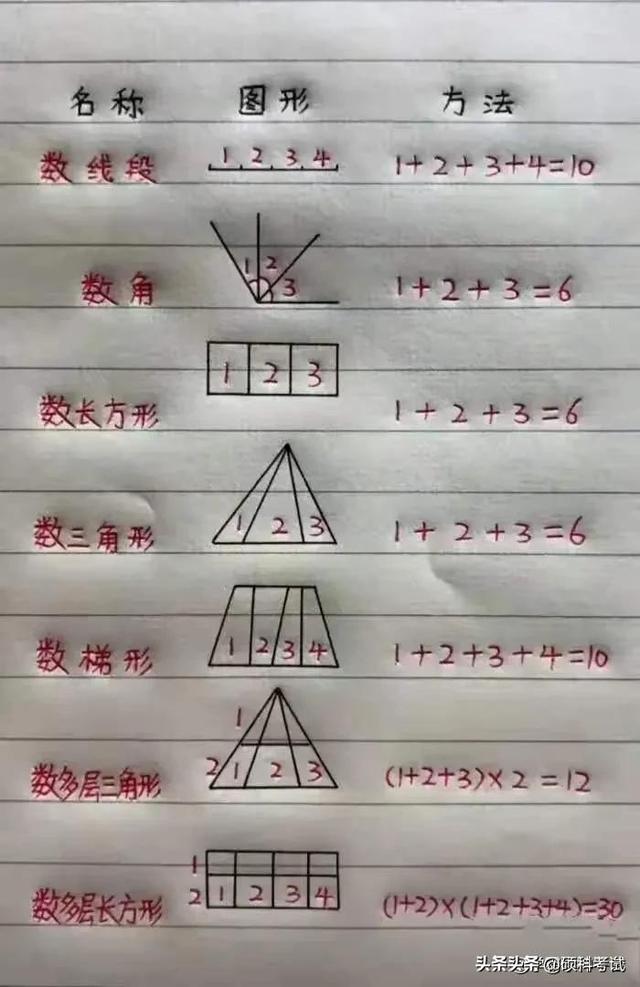 名称 图形 方法
数线段 1 2 3 4 1+2+3+4=10
数角 1 2 3 1+2+3=6
数长方形 1 2 3 1+2+3=6
数三角形 1 2 3 1+2+3=6
数梯形 1 2 3 4 1+2+3+4=10
1
数多层三角形 2 1 2 3 (1+2+3)×2=12
1
数多层长方形 2 1 2 3 4 (1+2)×(1+2+3+4)=30
头条头条@硕科考试